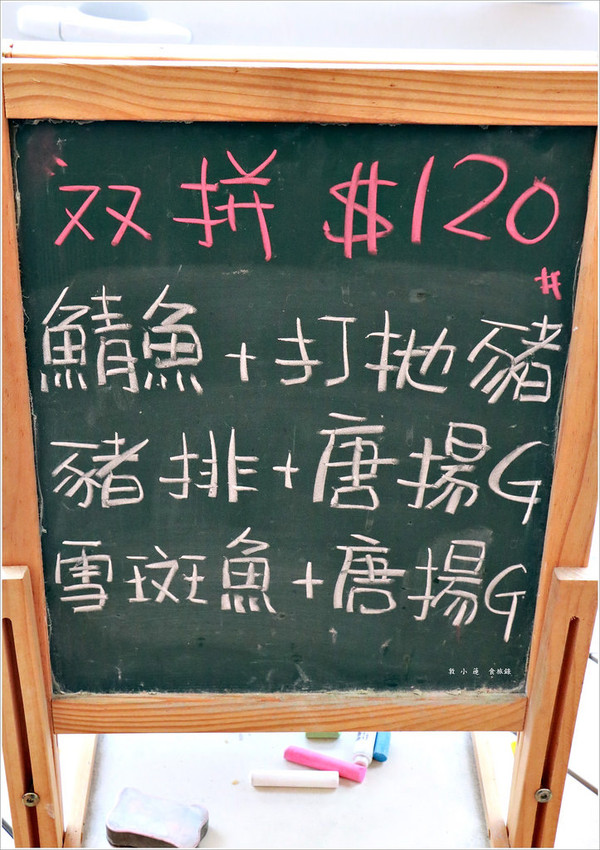 双拼 $120
#
鯖魚+打拋豬
豬排+唐揚G
雪斑魚+唐揚G
敦小蓮 食旅錄